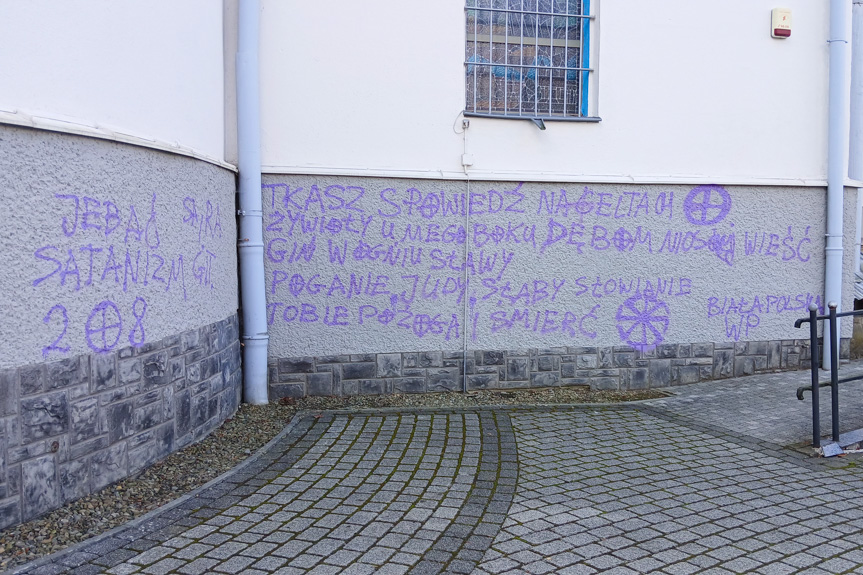 JEBAĆ
SATANIZM GIT
2 0 8
TKASZ SPOWIEDŹ NA GELTACH
ŻYWIOŁY U MEGO BOKU DĘBOM NIOSĄ WIEŚĆ
GIŃ W OGNIU SŁAWY
POGANIE, JUDY, SŁABY SŁOWIANIE
TOBIE POŻOGA I ŚMIERĆ
BIAŁA POLSKA
WP